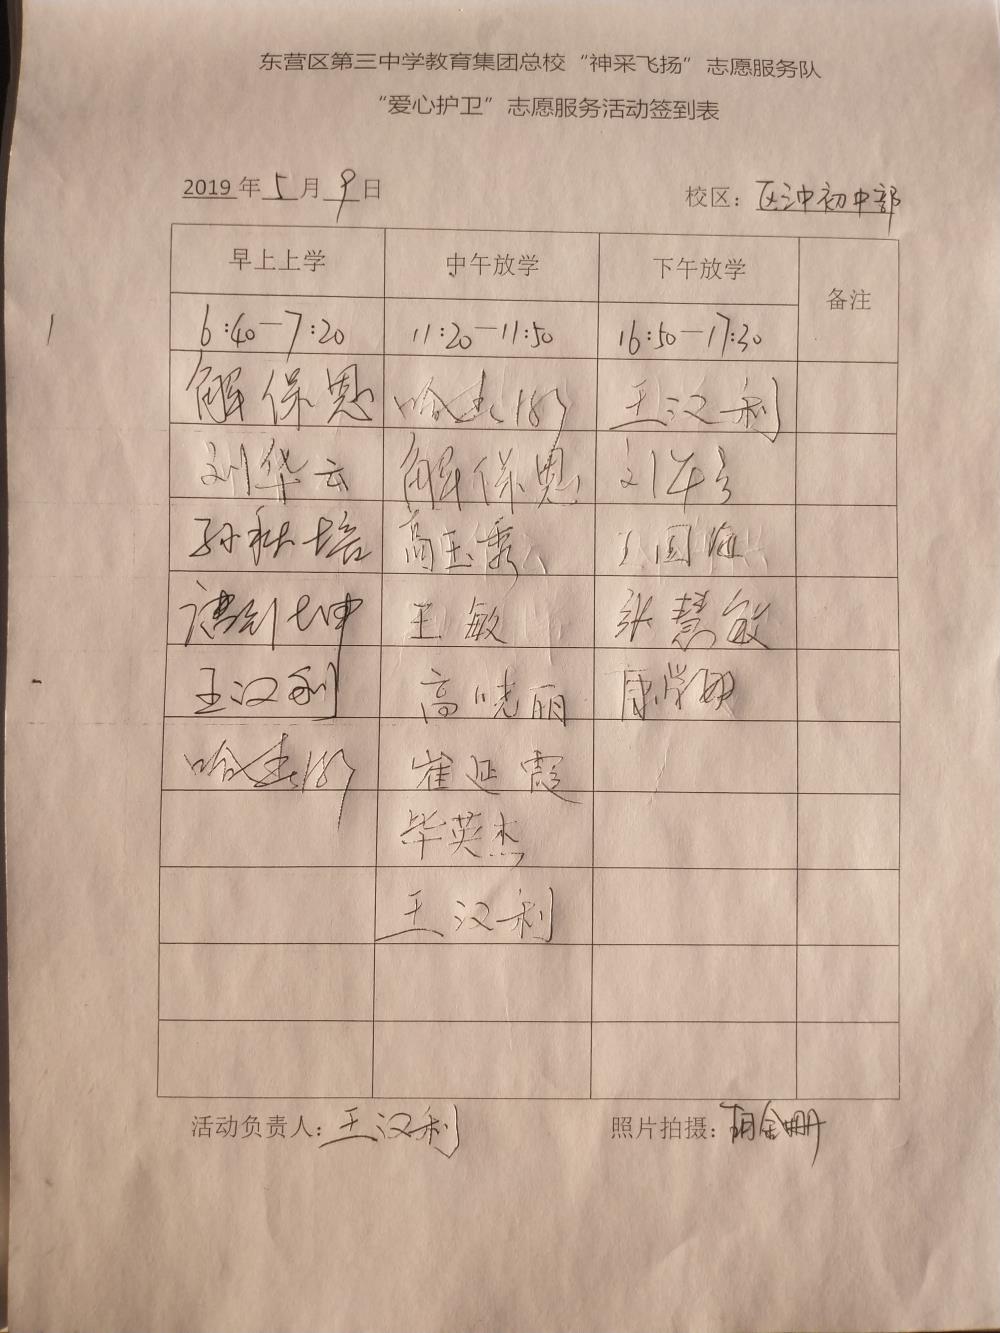 东营区第三中学教育集团总校“神采飞扬”志愿服务队
“爱心护卫”志愿服务活动签到表
2019 年 5 月 9 日 校区：区三中初中部
早上上学 中午放学 下午放学 备注
6:40—7:20 11:20—11:50 16:50—17:30
解保恩 哈 王汉利
刘华云 解保恩 刘华云
孙秋培 高玉秀 王国海
坤 王敏 张慧敏
王汉利 高晓丽 康学
哈 崔延霞
毕英杰
王汉利
活动负责人：王汉利 照片拍摄：胡金册